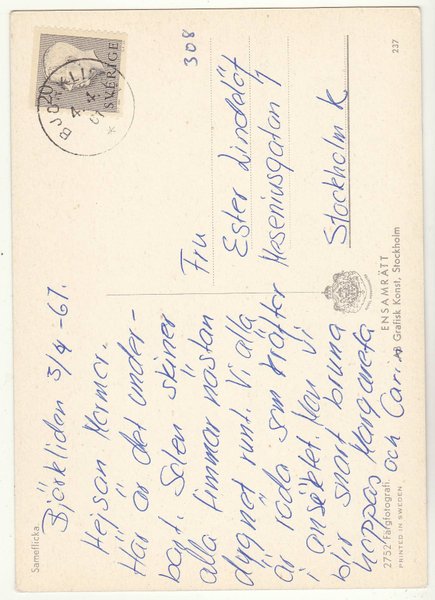 Sameflicka.
Björkliden 3/4-61.
Hejsan Mormor.
Här är det under-
bart. Solen skiner
alla timmar nästan
dygnet runt. Vi alla
är röda som kräftor
i ansiktet. Men vi
blir snart bruna
hoppas Margareta
och Carin
2752 Färgfotografi.
PRINTED IN SWEDEN
ENSAMRÄTT
AB Grafisk Konst, Stockholm
308
20
SVERIGE
BJÖRKLIDEN
4. 4.
61
Fru
Ester Linddlöf
Heseniusgatan 7
Stockholm K
237